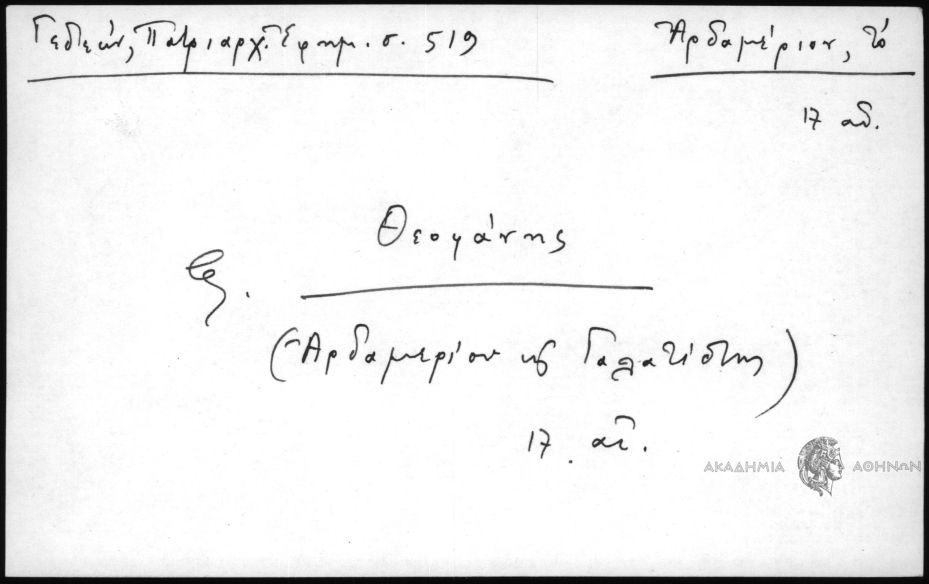 Γεδεών, Πατριαρχ. Ἐφημ. σ. 519
Ἀρδαμέριον, τό
17 αἰ.
Θεοφάνης
(Ἀρδαμερίου κ Γαλατίστης)
17. αἰ.
ΑΚΑΔΗΜΙΑ ΑΘΗΝΩΝ